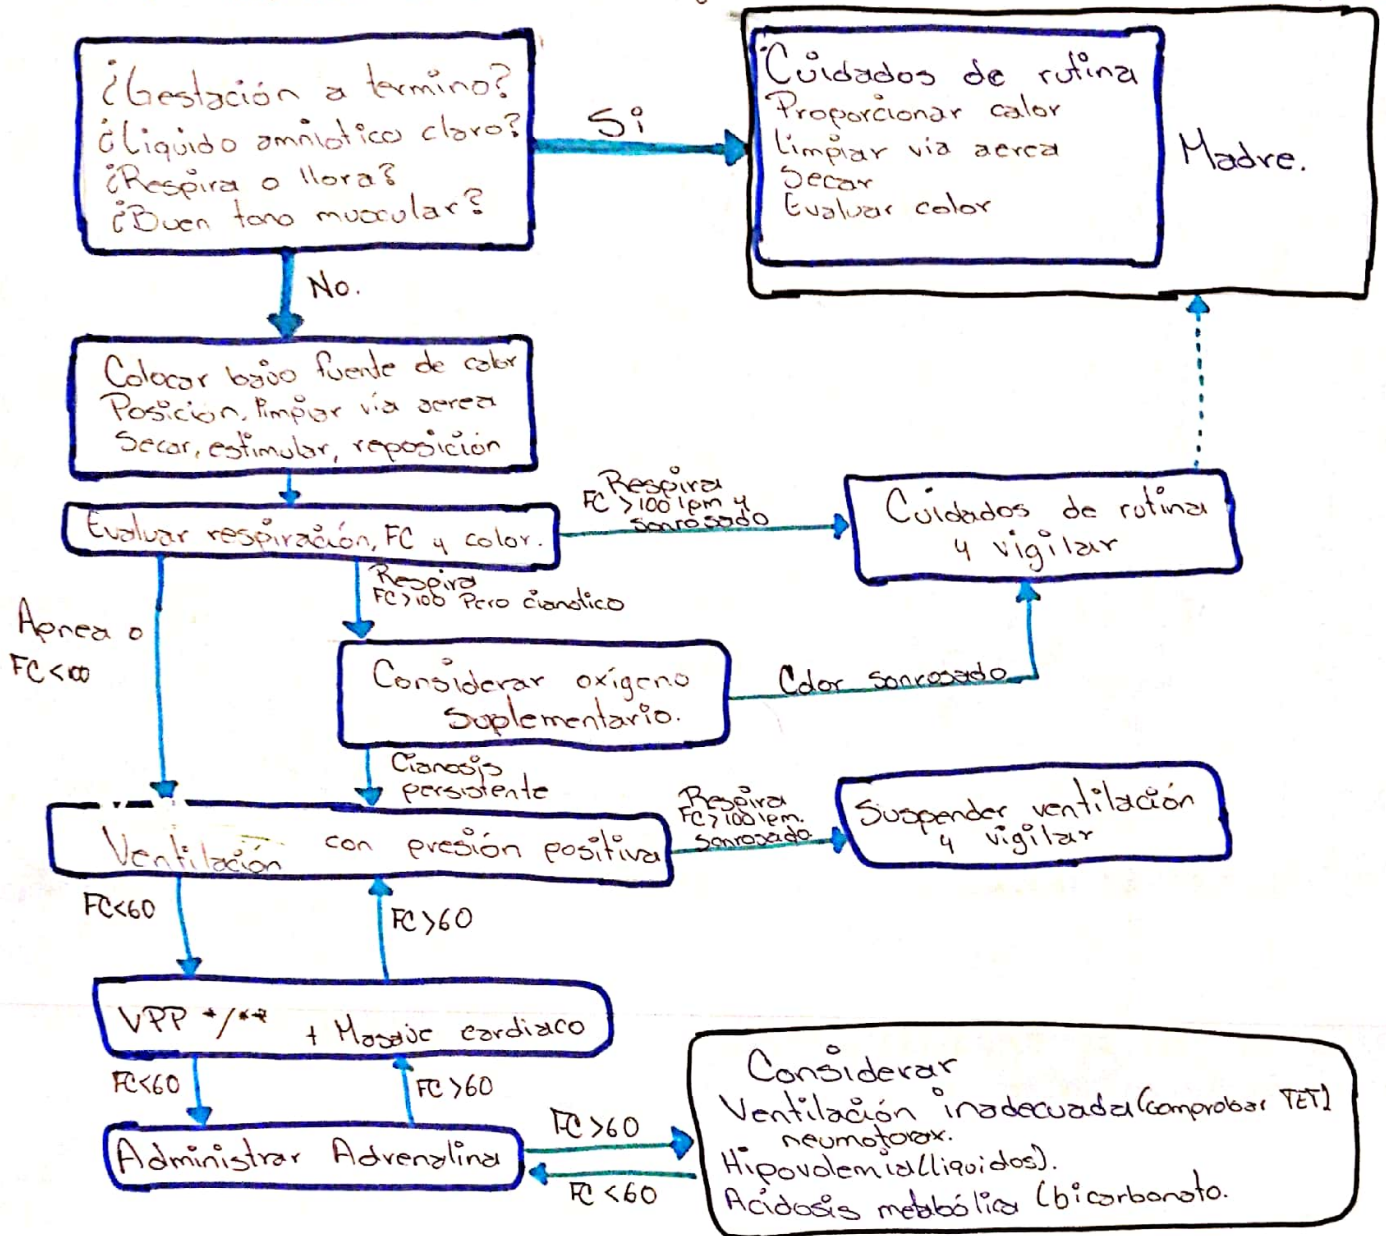 ¿Gestación a termino?
¿Liquido amniotico claro?
¿Respira o llora?
¿Buen tono muscular?
Si
Cuidados de rutina
Proporcionar calor
Limpiar via aerea
Secar
Evaluar color
Madre.
No.
Colocar bajo fuente de calor
Posición, limpiar vía aerea
Secar, estimular, reposición
Evaluar respiración, FC y color.
Respira
FC >100 lpm y
sonrosado
Cuidados de rutina
y vigilar
Respira
FC>100 Pero cianotico
Apnea o
FC<100
Considerar oxígeno
suplementario.
Color sonrosado
Cianosis
persistente
Ventilación con presión positiva
Respira
FC>100 lpm.
sonrosado
Suspender ventilación
y vigilar
FC<60
FC>60
VPP */** + Masaje cardiaco
FC<60
FC>60
Administrar Adrenalina
FC>60
FC<60
Considerar
Ventilación inadecuada (comprobar TET)
neumotorax.
Hipovolemia (liquidos).
Acidosis metabólica (bicarbonato.